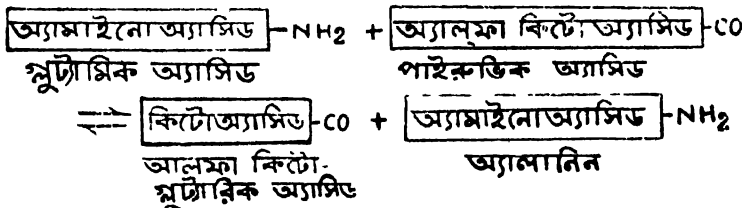 অ্যামাইনোঅ্যাসিড-NH2 + অ্যালফা কিটোঅ্যাসিড-CO
গ্লুট্যামিক অ্যাসিড পাইরুভিক অ্যাসিড
⇌ কিটোঅ্যাসিড-CO + অ্যামাইনোঅ্যাসিড-NH2
আলফা কিটো- অ্যালানিন
গ্লুট্যারিক অ্যাসিড